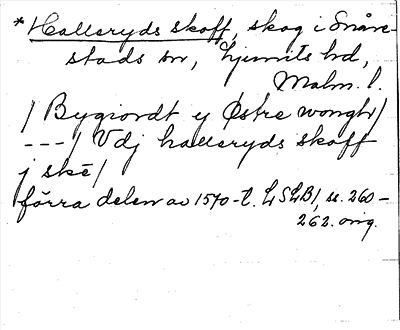 *Halleryds skoff, skog i Snåre-
stads sn, Ljunits hd,
Malm. l.
/ Bygiordt ij Østre wongh/
---/ Vdj halleryds skoff
j skē/
förra delen av 1570-t. LSLB1, s. 260-
262. orig.